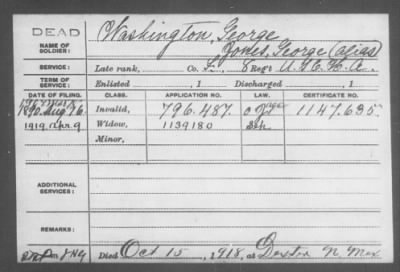 DEAD
Washington, George
NAME OF SOLDIER:
Jones, George (alias)
SERVICE: Late rank, Co. L., 8 Reg't U.S.C.H.A.
TERM OF SERVICE: Enlisted , 1 Discharged , 1
DATE OF FILING. CLASS. APPLICATION NO. LAW. CERTIFICATE NO.
1890 Aug 76. Invalid, 796.487. 1147.635.
1919 Apr. 9 Widow, 1139180
Minor,
ADDITIONAL SERVICES:
REMARKS:
Died Oct 15, 1918, at Dexter N. Mex